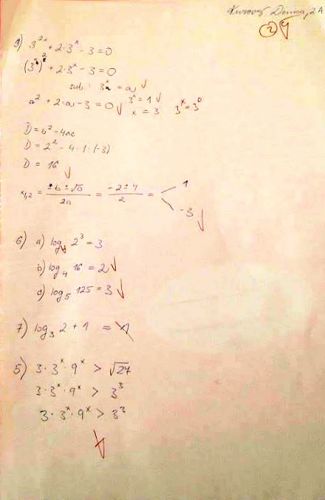 2 A
9) 3^2x + 2·3^x - 3 = 0
(3^x)^2 + 2·3^x - 3 = 0
sub: 3^x = a
a^2 + 2·a - 3 = 0 3^x = 1
x = 3 3^x = 3^0
D = b^2 - 4ac
D = 2^2 - 4·1·(-3)
D = 16
x1,2 = ±b ± √D / 2a = -2 ± 4 / 2 = 1
-3
6) a) log 2^3 = 3
b) log4 16 = 2
c) log5 125 = 3
7) log3 2 + 1 =
5) 3·3^x·9^x > √27
3·3^x·9^x > 3^3
3·3^x·9^x > 3^3